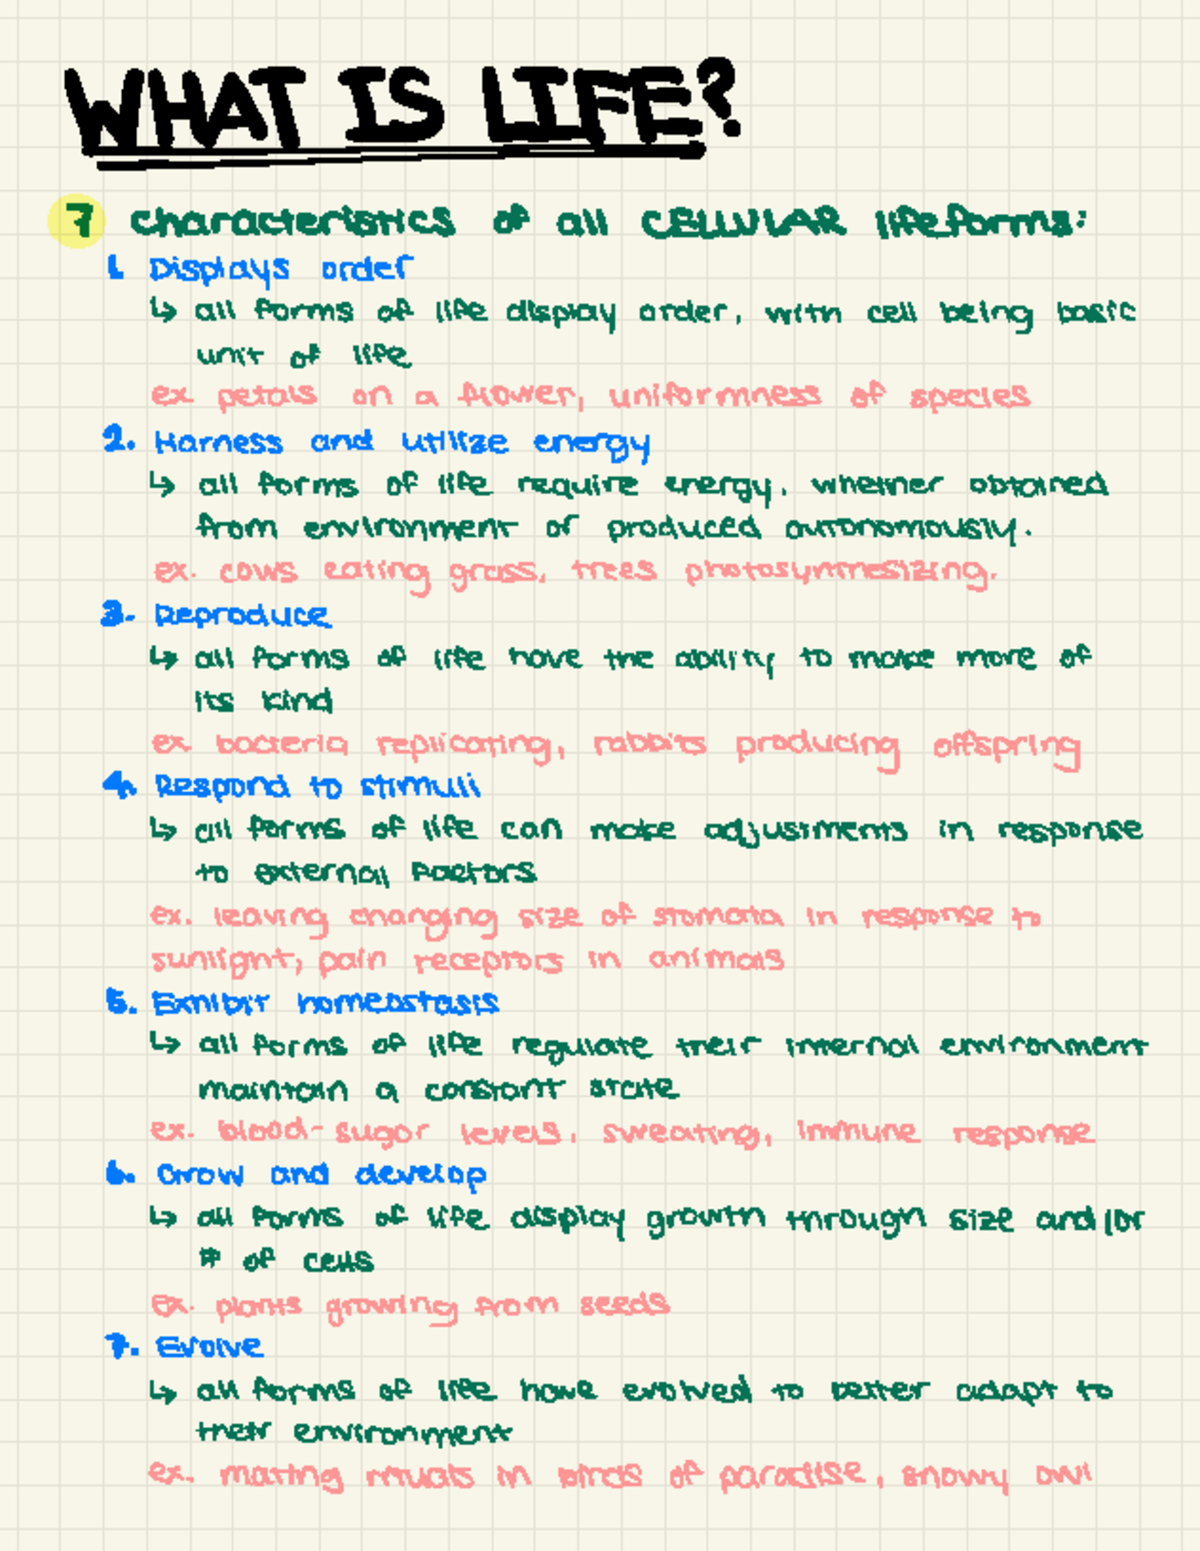 WHAT IS LIFE?
7 characteristics of all CELLULAR lifeforms:
1. Displays order
↳ all forms of life display order, with cell being basic
unit of life
ex petals on a flower, uniformness of species
2. Harness and utilize energy
↳ all forms of life require energy, whether obtained
from environment or produced autonomously.
ex. cows eating grass, trees photosynthesizing.
3. Reproduce
↳ all forms of life have the ability to make more of
its kind
ex bacteria replicating, rabbits producing offspring
4. Respond to stimuli
↳ all forms of life can make adjustments in response
to external factors
ex. leaving changing size of stomata in response to
sunlight, pain receptors in animals
5. Exhibit homeostasis
↳ all forms of life regulate their internal environment
maintain a constant state
ex. blood-sugar levels, sweating, immune response
6. Grow and develop
↳ all forms of life display growth through size and/or
# of cells
Ex. plants growing from seeds
7. Evolve
↳ all forms of life have evolved to better adapt to
their environment
ex. mating rituals in birds of paradise, snowy owl